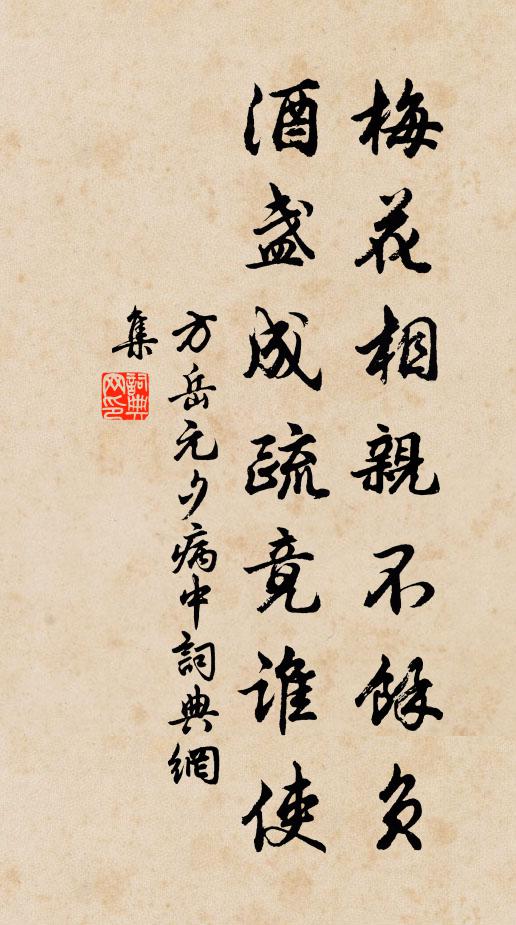 梅花相親不餘負
酒盞成疏竟誰使
方岳元夕病中詞典網
集
詞典
网印